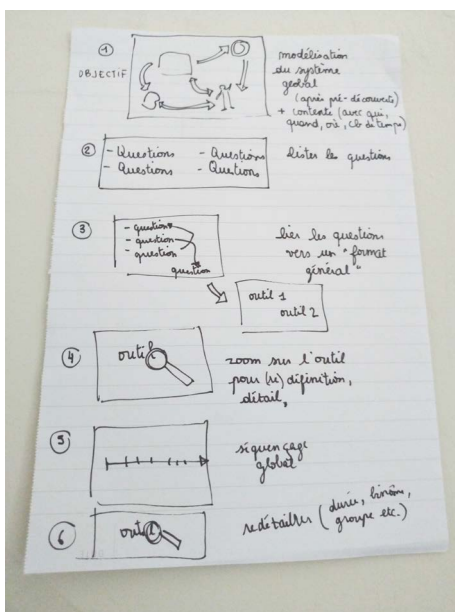 1
OBJECTIF
modélisation
du système
global
(après pré-découverte)
+ contexte (avec qui,
quand, où, cb de temps)
2
- Questions - Questions
- Questions - Questions
lister les questions
3
- question
- question
- question
question
lier les questions
vers un "format
général"
outil 1
outil 2
4
outil
zoom sur l'outil
pour (re) définition,
détail,
5
séquençage
global
6
outil
redétailler (durée, binôme,
groupe etc.)